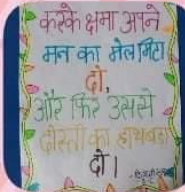 करके क्षमा अपने
मन का मेल मिटा
दो,
और फिर उससे
दोस्ती का हाथ बढ़ा
दो।